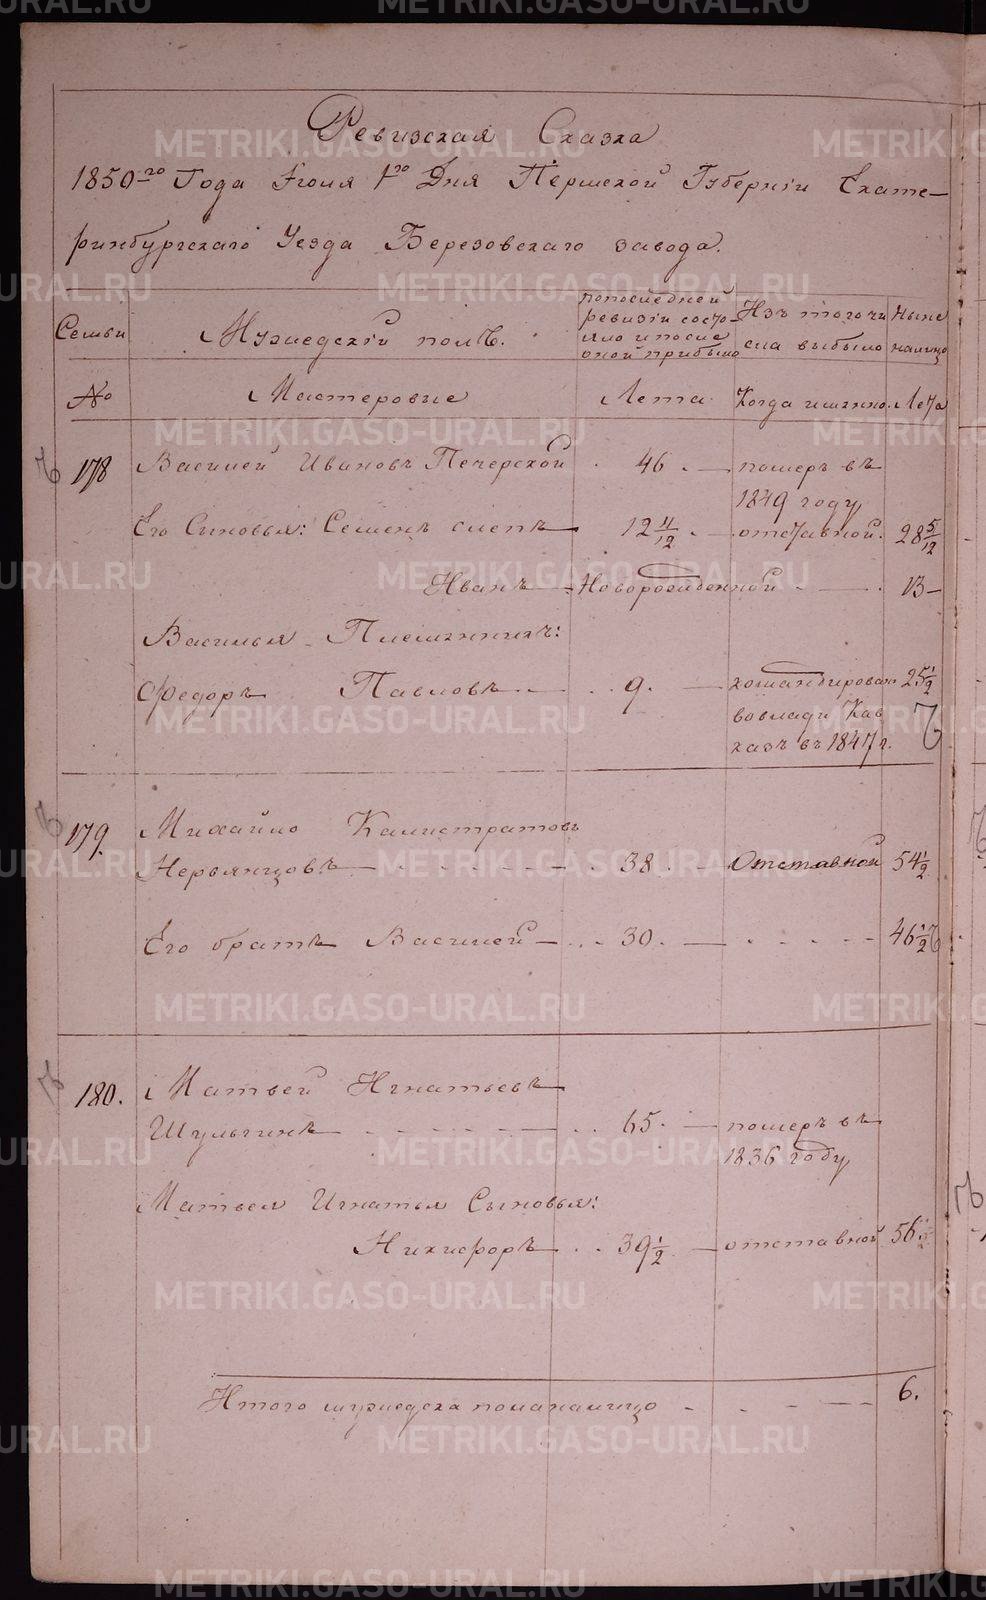 Ревизская Сказка
1850го Года Iюня 1го Дня Пермской Губернiи Екате-
ринбургскаго Уезда Березовскаго завода.
Семьи
Мужедскiй полъ.
попоследней ревизiи состо-
яло и после оной прибыло
Изъ того чи
сла выбыло
Ныне
налицо
№
Мастеровые
Лета
Когда имянно.
Лета
178
Василей Ивановъ Печерской 46. померъ въ
1849 году
Его Сыновья: Семенъ слепъ 12 4/12 отставной. 28 5/12
Иванъ Новорожденной 13
Василья Племянникъ:
Федоръ Павловъ 9. командирован 25 1/2
вовлади Кав
казъ въ 1847 г.
179.
Михайло Калистратовъ
38. Отставной 54 1/2
Его братъ Василей 30. 46 1/2
180.
Матвей Игнатьевъ
Шульгинъ 65. померъ въ
1836 году
Матвея Игнатья Сыновья:
Никифоръ 39 1/2 отставной 56 1/2
Итого мужедска пола налицо 6.
METRIKI.GASO-URAL.RU